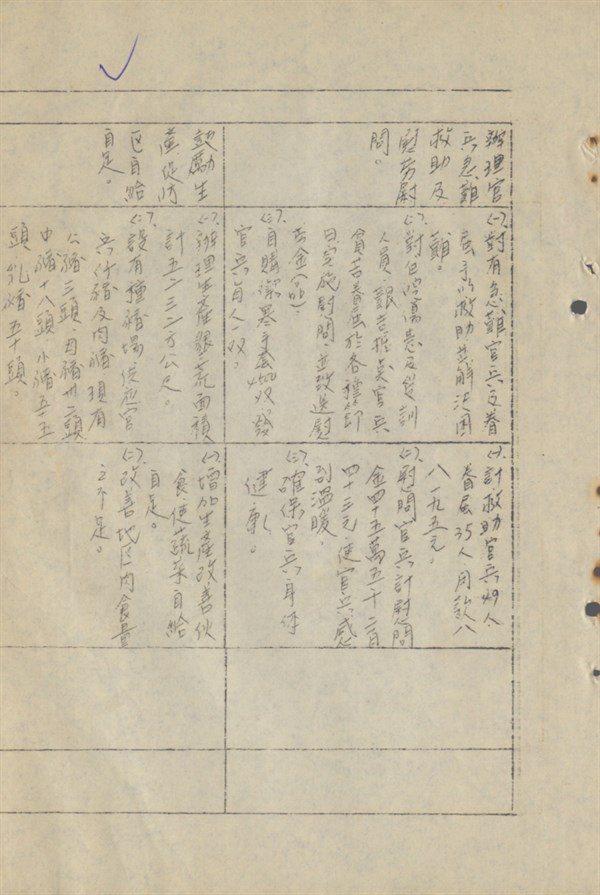 辦理官
兵急難
救助及
慰勞慰
問。
(一)、對有急難官兵及眷
屬予以救助共解決困
難。
(二)、對
傷患及
訓
人員
官兵
眷屬於各
節
日實施慰問,並致送慰
(三)、自購
發
官兵每人一双。
(一)、計救助官兵49人
眷屬35人,用款八
八一九五元。
(二)、慰問官兵計慰問
金四十五萬五千二百
四十三元,使官兵感
到溫暖。
(三)、確保官兵身体
健康。
鼓勵生
產,
防
区自給
自足。
(一)、辦理生產墾荒面積
方公尺。
(二)、設有種豬場,供應官
兵仔豬及肉豬,現有
公豬三頭,母豬卅二頭
中豬十八頭,小豬五十五
頭,乳豬五十頭。
(一)、增加生產改善伙
食,使蔬菜自給
自足。
(二)、改善地区肉食量
之不足。